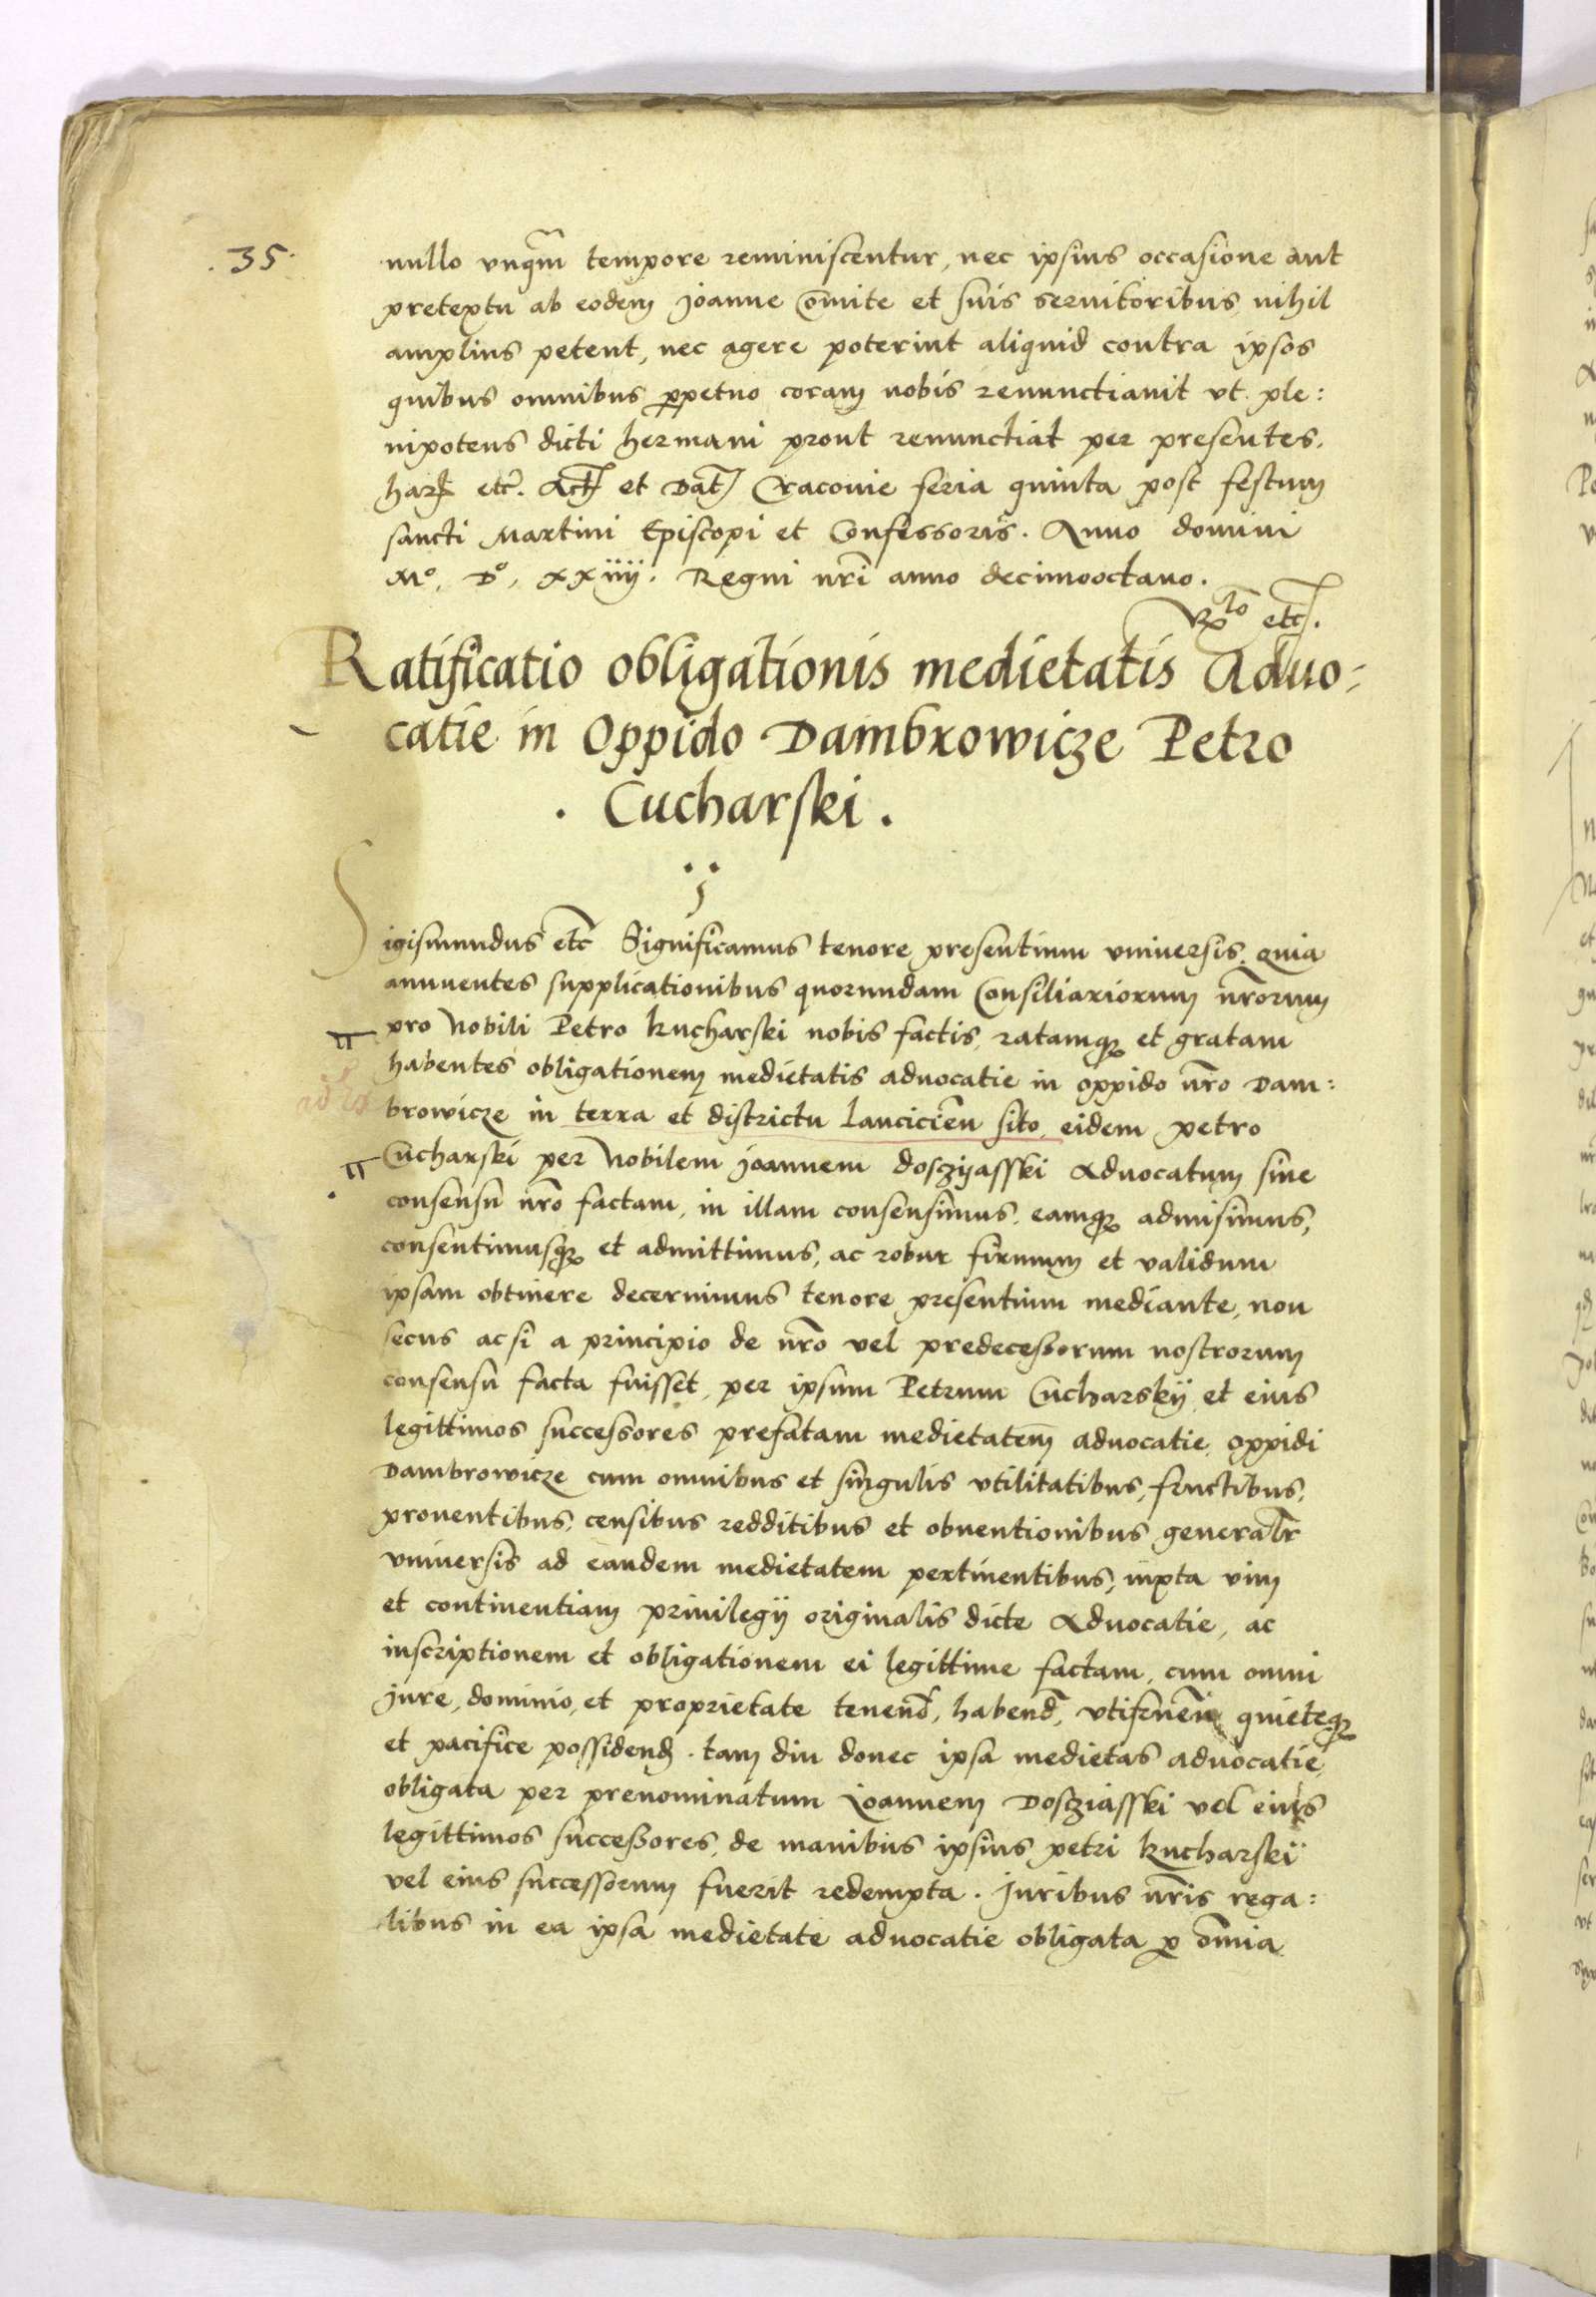 .35.
nullo vnq̃m tempore reminiscentur, nec ipsius occasione aut
pretextu ab eodem Joanne Comite et suis seruitoribus nihil
amplius petent, nec agere poterint aliquid contra ipsos
quibus omnibus ꝑpetuo coram nobis renunctiauit vt ple:
nipotens dicti hermani prout renunctiat per presentes.
harꝝ etc̃. Act̃ et Dat̃ Cracouie feria quinta post festum
sancti Martini Episcopi et Confessoris. Anno domini
Mº. Dº. xxiiij. Regni nr̃i anno decimooctauo.
etc̃.
Ratificatio obligationis medietatis Aduo:
catie in Oppido Dambrowicze Petro
. Cucharski .
Sigismundus etc̃ Significamus tenore presentium vniuersis. quia
annuentes supplicationibus quorundam Consiliariorum nr̃orum
pro Nobili Petro Kucharski nobis factis, ratamqꝫ et gratam
habentes obligationem medietatis aduocatie in oppido nr̃o Dam:
browicze in terra et districtu Lancicien̄ sito, eidem petro
Cucharski per Nobilem Joannem doszijasski Aduocatum sine
consensu nr̃o factam, in illam consensimus, eamqꝫ admisimus,
consentimusqꝫ et admittimus, ac robur firmum et validum
ipsam obtinere decernimus tenore presentium mediante, non
secus ac si a principio de nr̃o vel predecessorum nostrorum
consensu facta fuisset, per ipsum Petrum Cucharskij et eius
legittimos successores prefatam medietatem aduocatie oppidi
Dambrowicze cum omnibus et singulis vtilitatibus, fructibus,
prouentibus, censibus redditibus et obuentionibus generalr̃
vniuersis ad eandem medietatem pertinentibus, iuxta vim
et continentiam priuilegij originalis dicte Aduocatie, ac
inscriptionem et obligationem ei legittime factam, cum omni
Jure, dominio, et proprietate tenend̃, habend̃, vtifruen̄ quieteqꝫ
et pacifice possidend̃. tam diu donec ipsa medietas aduocatie
obligata per prenominatum Joannem Dosziasski vel eius
legittimos successores, de manibus ipsius petri Kucharskij
vel eius successorum fuerit redempta. Juribus nr̃is rega:
libus in ea ipsa medietate aduocatie obligata ꝑ om̃ia